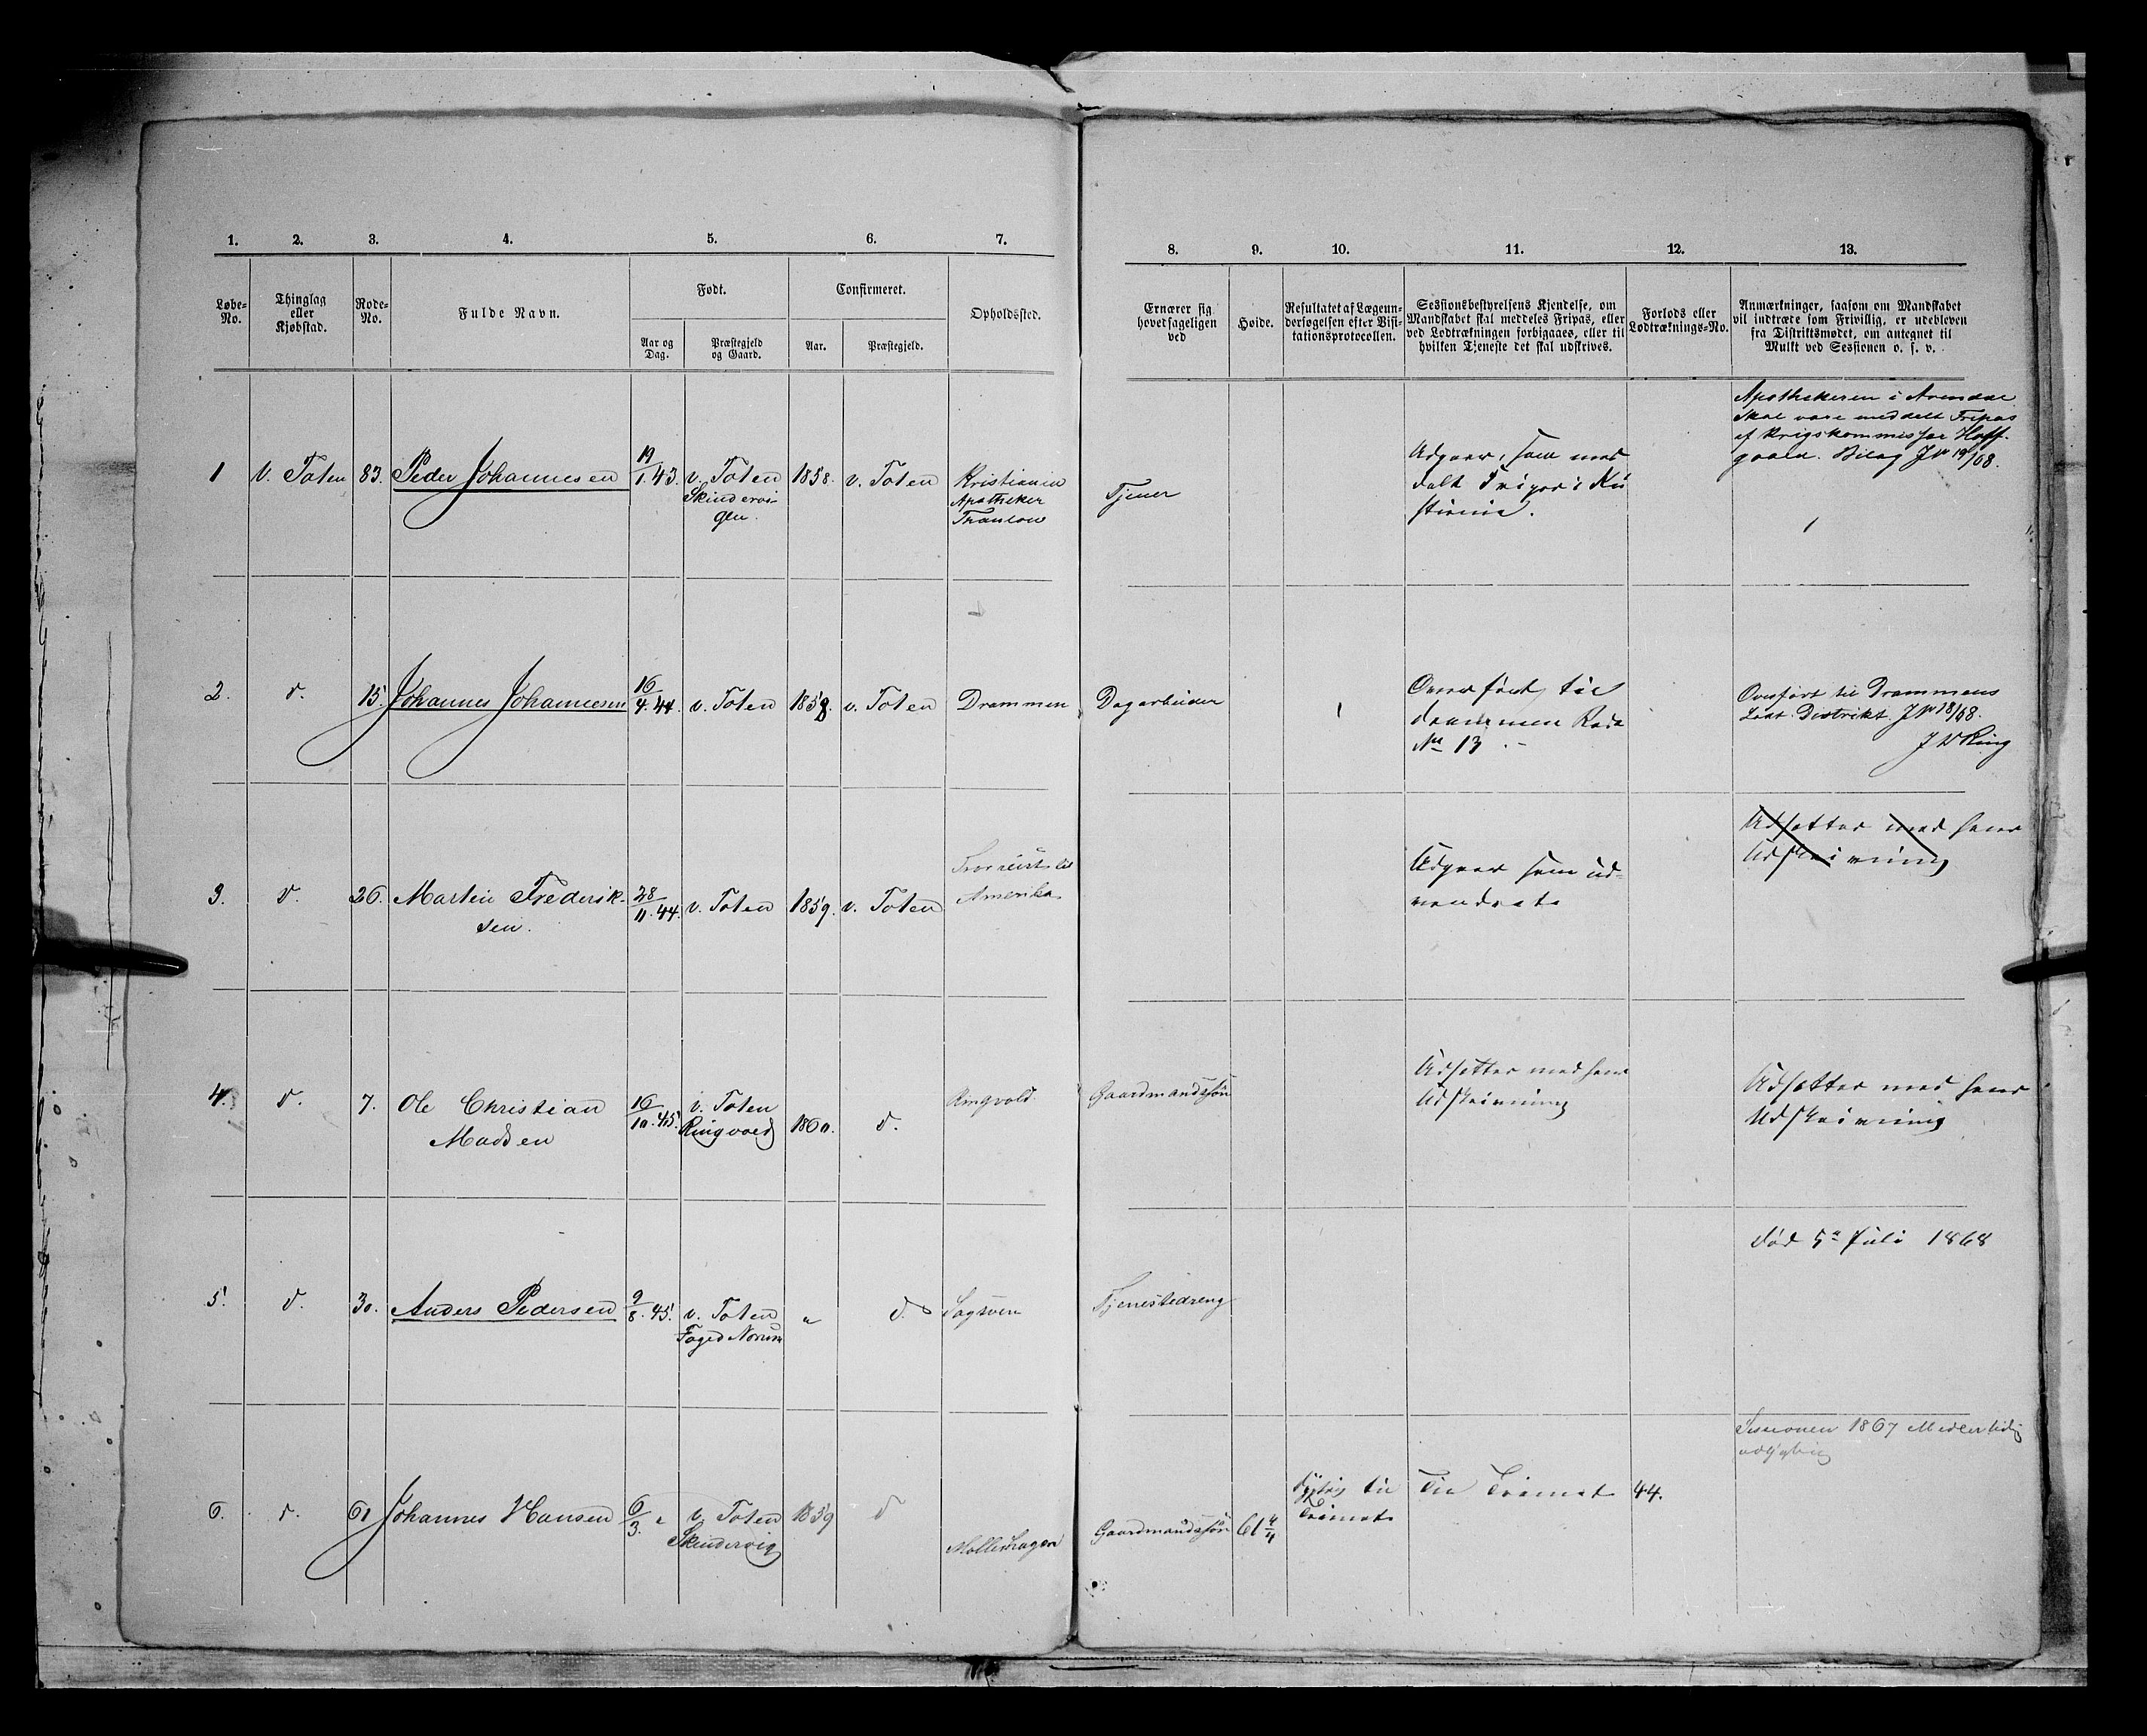 1. 2. 3. 4. 5. 6. 7.
8. 9. 10. 11. 12. 13.
Løbe-No.
Thinglag eller Kjøbstad.
Rode-No.
Fulde Navn.
Født.
Aar og Dag.
Præstegjeld og Gaard.
Confirmeret.
Aar.
Præstegjeld.
Opholdssted.
Ernærer sig hovedsageligen ved
Høide.
Resultatet af Lægeundersøgelsen efter Visitationsprotocollen.
Sessionsbestyrelsens Kjendelse, om Mandskabet skal meddeles Fripas, eller ved Lodtrækningen forbigaaes, eller til hvilken Tjeneste det skal udskrives.
Forlods eller Lodtræknings-No.
Anmærkninger, saasom om Mandskabet vil indtræde som Frivillig, er udebleven fra Distriktsmødet, om antegnet til Mulkt ved Sessionen o. s. v.
1 V. Toten 83. Peder Johannesen 19/1. 43. v. Toten 1858. v. Toten Kristiania
Skindervi-
gen.
Apotheker
Tjener
Udgaaer, som med
delt Fripas i Kri
stiania.
Apothekeren i Arendal
skal være meddelt Fripas
af Krigskommissær Hoff-
gaard. Bilag J No 19/68.
2. d. 15. Johannes Johannesen 16/4. 44. v. Toten 1858. v. Toten Drammen Dagarbeider
1
Overført til
Drammen Rode
No 13
Overført til Drammens
Lodt. Distrikt. J No 18/68.
J W Ring
3. d. 26. Martin Frederik-
sen.
28/11. 44. v. Toten 1859. v. Toten
til
Amerika
Udgaaer som ud-
vandret
Udsætter med hans
Udskrivning
4. d. 7. Ole Christian
Madsen
16/10. 45. v. Toten
Ringvold
1860. d. Ringvold Gaardmandssøn
Udsætter med hans
Udskrivning
Udsætter med hans
Udskrivning
5. d. 30. Anders Pedersen 9/8. 45. v. Toten
Faged Norum
" d. Sogstuen Tjenestedreng
død 5te Juli 1868
6. d. 61 Johannes Hansen 6/3. " v. Toten 1859 d
Skindervig
Møllerhagen Gaardmandssøn 61 4/4
Dygtig til
Trainet
Til Trainet 44.
Sessionen 1867 Midlertidig
udygtig